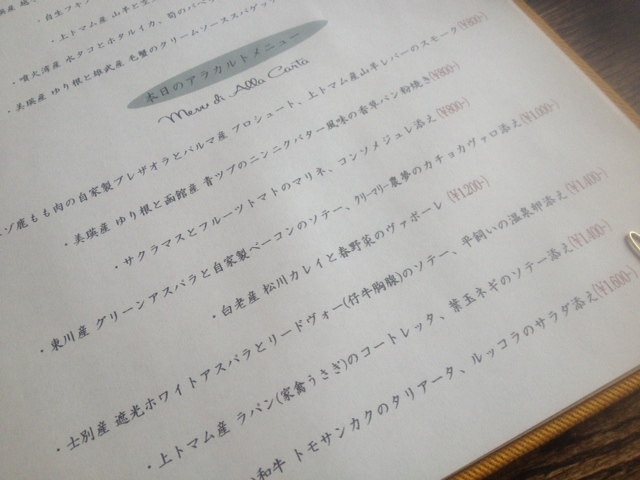 ・自生フキノ
・上トマム産 山羊と生
・噴火湾産 水タコとホタルイカ、筍のペペ
・美瑛産 ゆり根と雄武産 毛蟹のクリームソーススパゲッ
本日のアラカルトメニュー
Menu di Alla Carta
ゾ鹿もも肉の自家製ブレザオラとパルマ産 プロシュート、上トマム産山羊レバーのスモーク(¥800-)
・美瑛産 ゆり根と函館産 青ツブのニンニクバター風味の香草パン粉焼き(¥800-)
・サクラマスとフルーツトマトのマリネ、コンソメジュレ添え(¥800-)
・東川産 グリーンアスパラと自家製ベーコンのソテー、クリーマリー農夢のカチョカヴァロ添え(¥1,000-)
・白老産 松川カレイと春野菜のヴァポーレ(¥1,200-)
・士別産 遮光ホワイトアスパラとリードヴォー(仔牛胸腺)のソテー、平飼いの温泉卵添え(¥1,400-)
・上トマム産 ラパン(家禽うさぎ)のコートレッタ、葉玉ネギのソテー添え(¥1,400-)
和牛 トモサンカクのタリアータ、ルッコラのサラダ添え(¥1,600-)